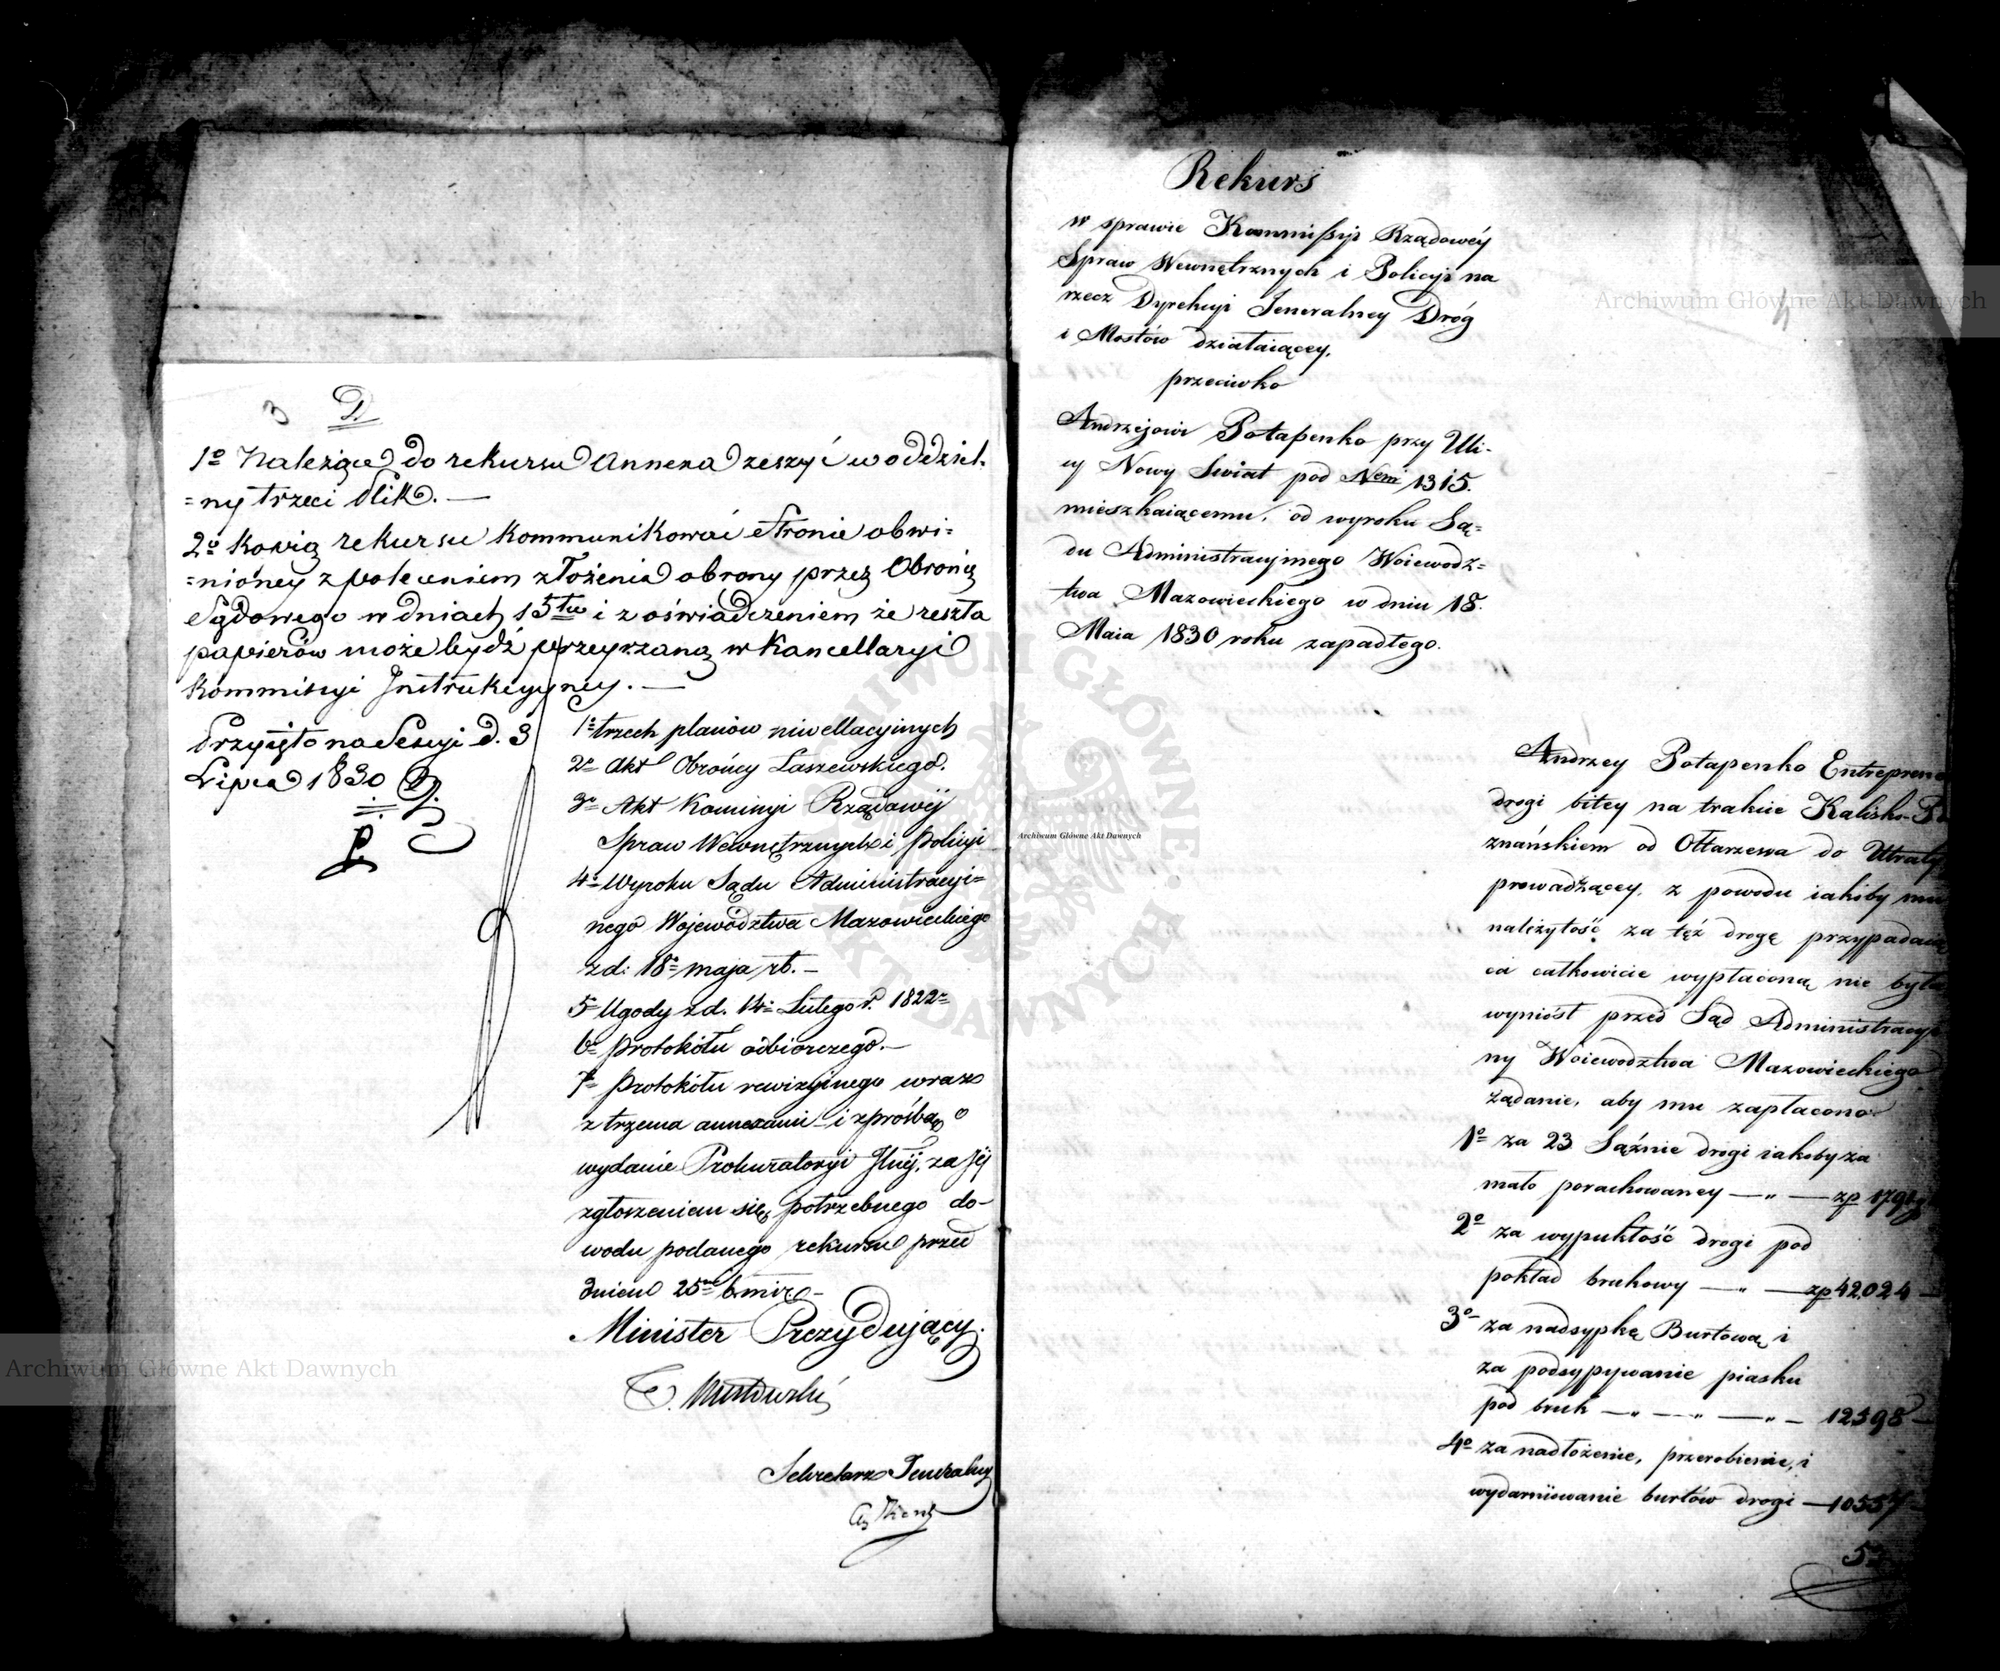 3 D
1o Należące do rekursu Annexa zeszyć w oddziel-
=ny trzeci Plik. —
2o Kopią rekursu kommunikować Stronie obwi-
=nioney z poleceniem złożenia obrony przez Obrońcę
Sądowego w dniach 15tu i z oświadczeniem że reszta
papierów może bydź przeyrzaną w Kancellaryi
Kommissyi Instrukcyjney. —
Przyięto na Sessyi d. 3
Lipca 1830
1o trzech planów niwellacyjnych
2o Akt Obrońcy Łaszewskiego.
3o Akt Kommissyi Rządowéj
Spraw Wewnętrznych i Policyi
4o Wyroku Sądu Administracyi=
nego Województwa Mazowieckiego
z d: 18o maja rb. —
5o Ugody z d. 14o Lutego r. 1822o
6o Protokółu odbiorczego. —
7o Protokółu rewizyinego wraz
z trzema annexami — i z prośbą o
wydanie Prokuratoryi Jlnéj, za Jéj
zgłoszeniem się, potrzebnego do-
wodu podanego rekursu przed
dniem 25m b. mca —
Minister Prezydujący.
T. Mostowski
Sekretarz Jeneralny
Rekurs
w sprawie Kommissyi Rządowéy
Spraw Wewnętrznych i Policyi na
rzecz Dyrekcyi Jeneralney Dróg
i Mostów działaiącey,
przeciwko
Andrzejowi Potapenko przy Uli-
cy Nowy Swiat pod Nem 1315.
mieszkaiącemu, od wyroku Są=
du Administracyinego Woiewodz=
twa Mazowieckiego w dniu 18.
Maia 1830 roku zapadłego.
Andrzey Potapenko Entrepren
drogi bitey na trakcie Kalisko-P
znańskiem od Ołtarzewa do Utraty
prowadzącey, z powodu iakoby mu
należytość za też drogę przypadaią
ca całkowicie wypłaconą nie była
wyniósł przed Sąd Administracyi
ny Woiewodztwa Mazowieckiego
żądanie, aby mu zapłacono
1o za 23 Sążnie drogi iakoby za
mało porachowaney — „ — zp 1791
2o za wypukłość drogi pod
pokład brukowy — „ — zp 42,024 —
3o za nadsypkę Burtową i
za podsypywanie piasku
pod bruk — „ — „ — „ — 12598 —
4o za nadłożenie, przerobienie, i
wydarniowanie burtów drogi — 10557
Archiwum Główne Akt Dawnych
Archiwum Główne Akt Dawnych
Archiwum Główne Akt Dawnych
ARCHIWUM GŁÓWNE AKT DAWNYCH